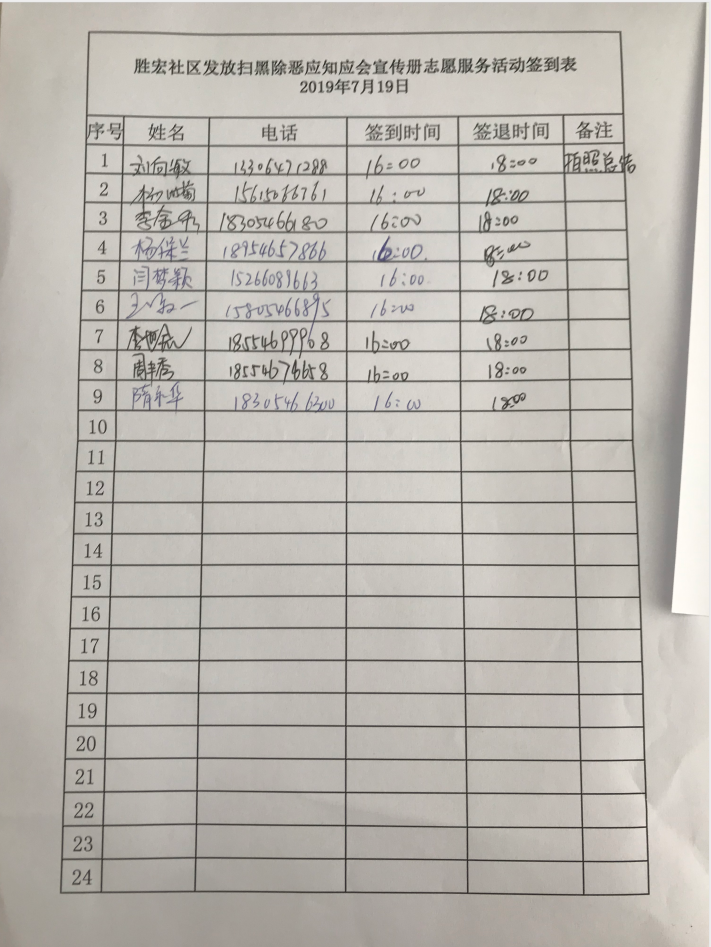 胜宏社区发放扫黑除恶应知应会宣传册志愿服务活动签到表
2019年7月19日
序号 姓名 电话 签到时间 签退时间 备注
1 刘向敏 13306471288 16:00 18:00 拍照总结
2 15615066761 16:00 18:00
3 李金 18305466180 16:00 18:00
4 杨保兰 18954657866 16:00 8:00
5 闫梦颖 15266089663 16:00 18:00
6 15805466895 16:00 18:00
7 18554699968 16:00 18:00
8 周丰秀 18554676658 16:00 18:00
9 隋永华 18305466300 16:00 18:00
10
11
12
13
14
15
16
17
18
19
20
21
22
23
24